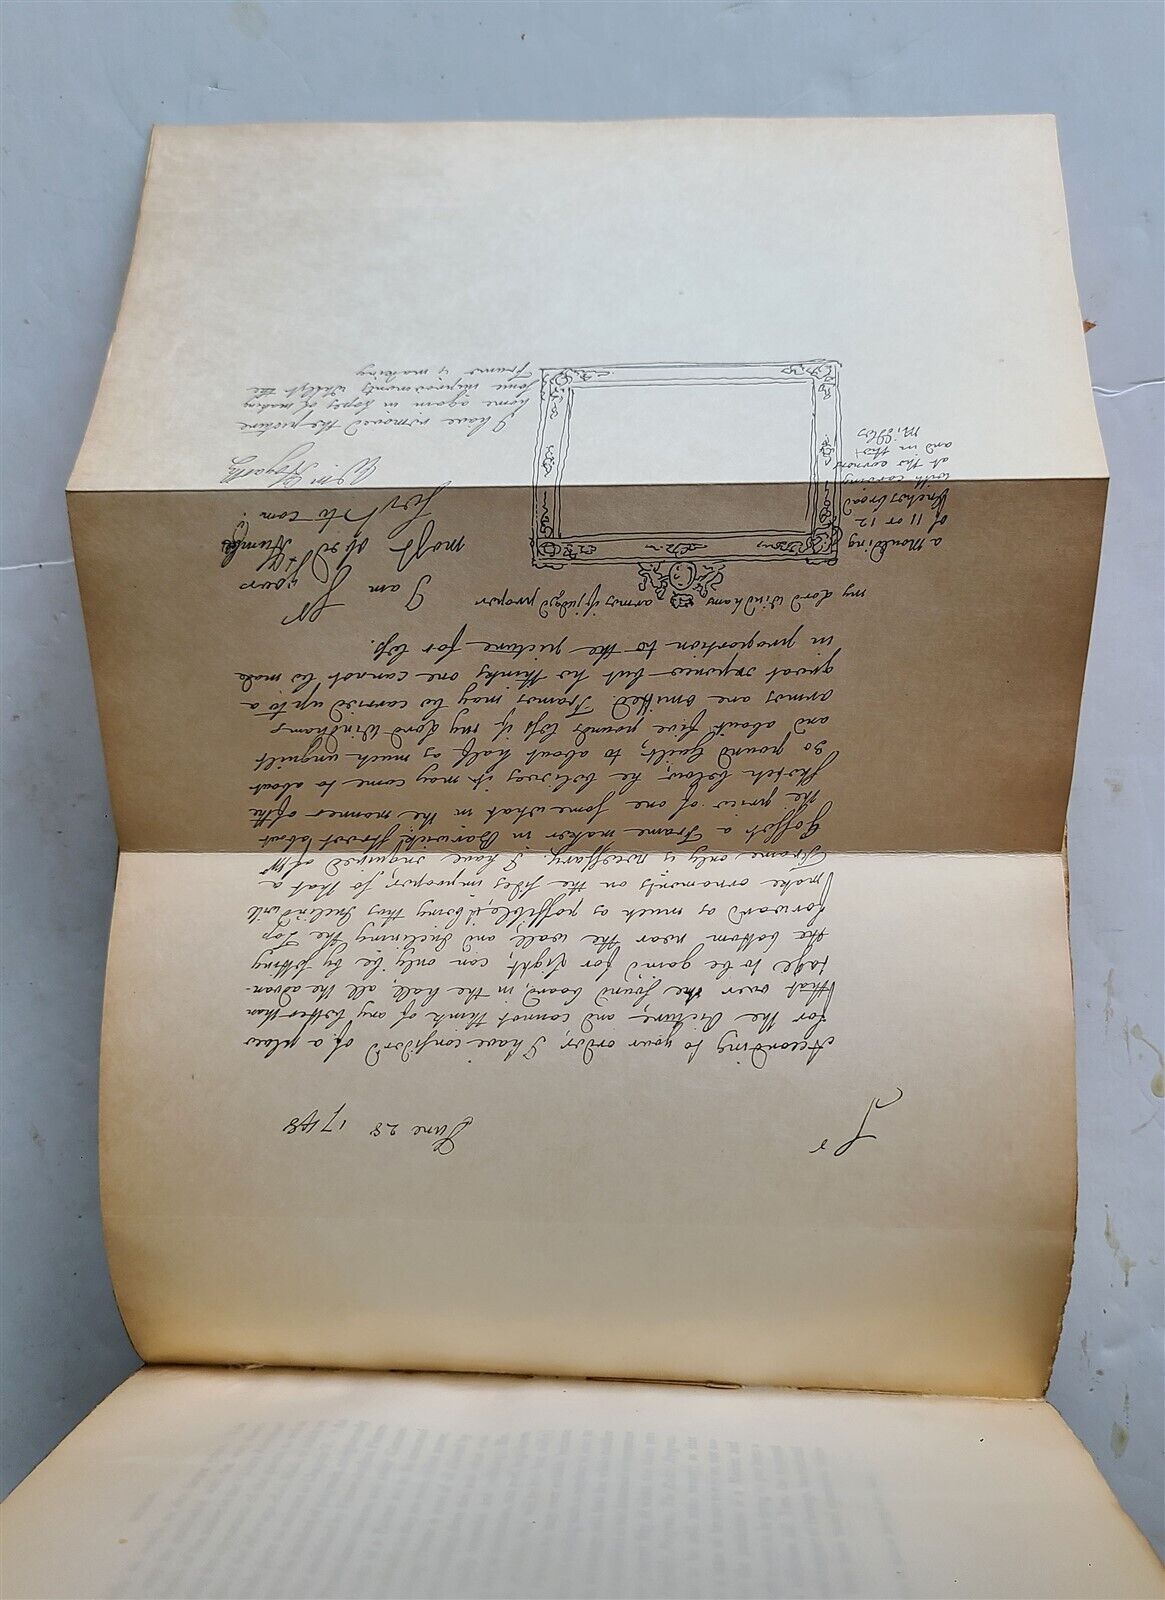 June 28 1748
Sr
According to your order, I have consider'd of a place
for the Picture, and cannot think of any better than
that over the sound board, in the hall, all the advan-
tage to be gain'd for Light, can only be by setting
the bottom near the wall and Inclining the Top
forward as much as possible, it being thus Inclind will
make ornaments on the sides improper, so that a
Frame only is necessary. I have inquired of Mr
Gosset a Frame maker in Barwick street about
the price of one Some what in the manner of the
sketch below, he believes it may come to about
30 pound Guilt, to about half as much unguilt
and about five pounds less if my Lord Windhams
armes are omitted. Frames may be carried up to a
great expence but he thinks one cannot be made
in proportion to the picture for less.
my Lord Windhams armes if judged proper
Sr
I am yours
most obedt Humle
Servt to com
Wm Hogarth
a Moulding
of 11 or 12
Inches broad
with carving
at the corners
and in the
Middles
I have removed the picture
home again in hopes of making
some improvements whilst the
Frame is making